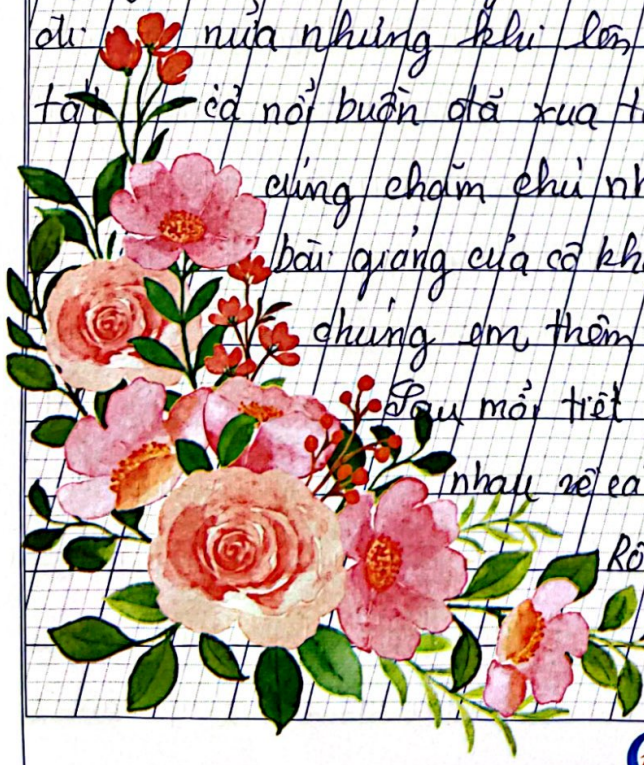 đi nữa nhưng khi lên
tất cả nỗi buồn đã xua t
cùng chăm chú nh
bài giảng của cô kh
chúng em thêm
Sau mỗi tiết
nhau về ca
Rồ